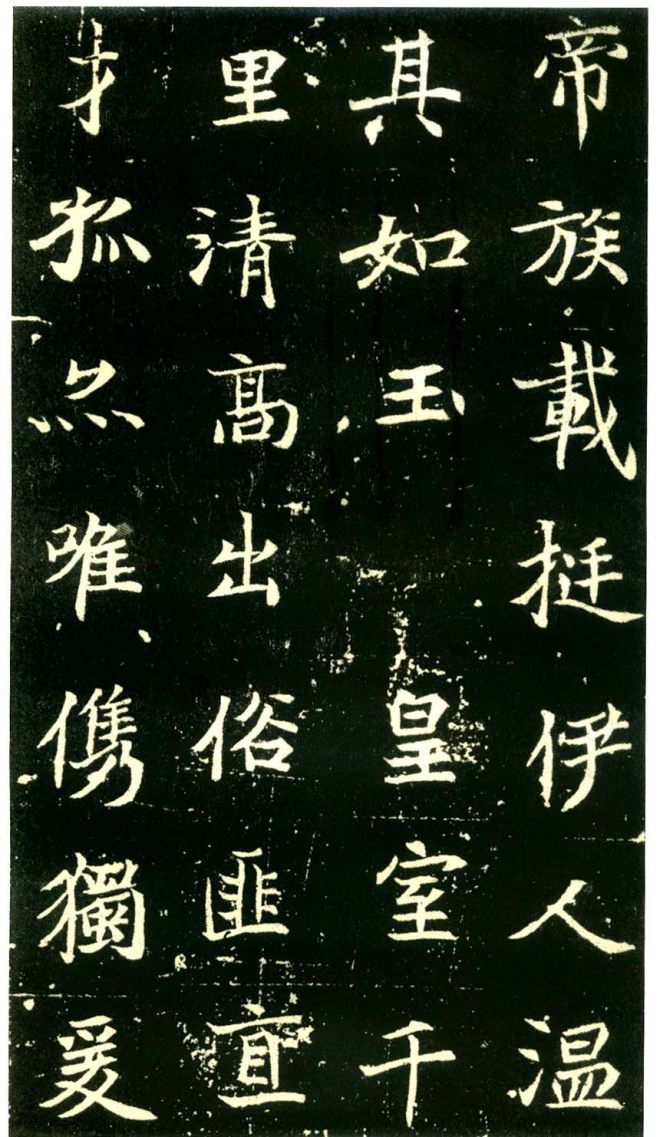 帝族載挺伊人温
其如玉　皇室千
里清髙出俗匪直
才狐亦唯儁獨爰